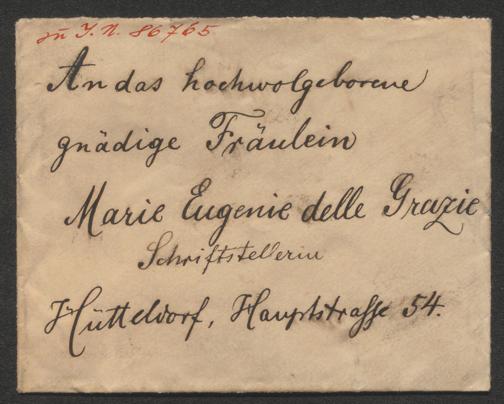 zu I.N. 86765
An das hochwolgeborene
gnädige Fräulein
Marie Eugenie delle Grazie
Schriftstellerin
Hütteldorf, Hauptstrasse 54.